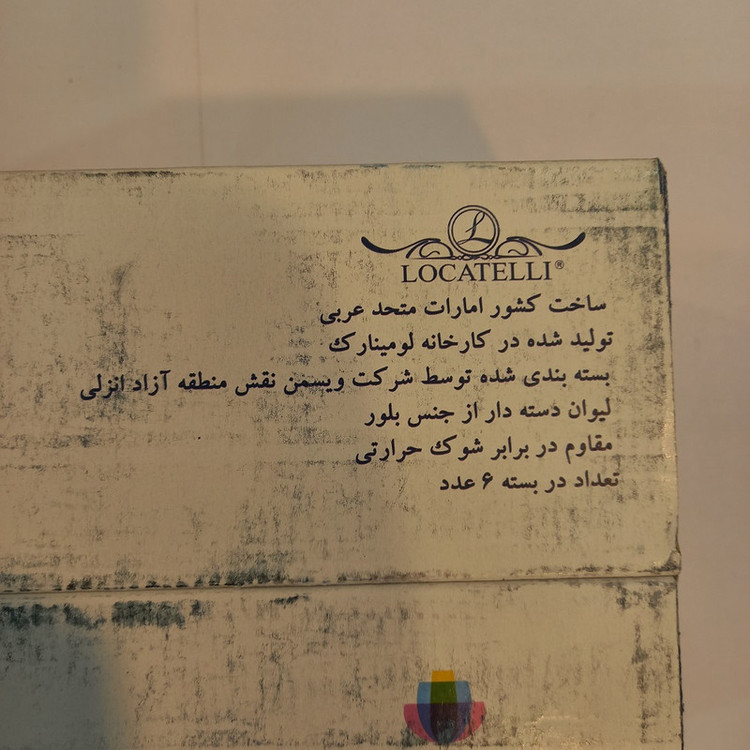 L
LOCATELLI®
ساخت کشور امارات متحد عربی
تولید شده در کارخانه لومینارک
بسته بندی شده توسط شرکت ویسمن نقش منطقه آزاد انزلی
لیوان دسته دار از جنس بلور
مقاوم در برابر شوک حرارتی
تعداد در بسته ۶ عدد